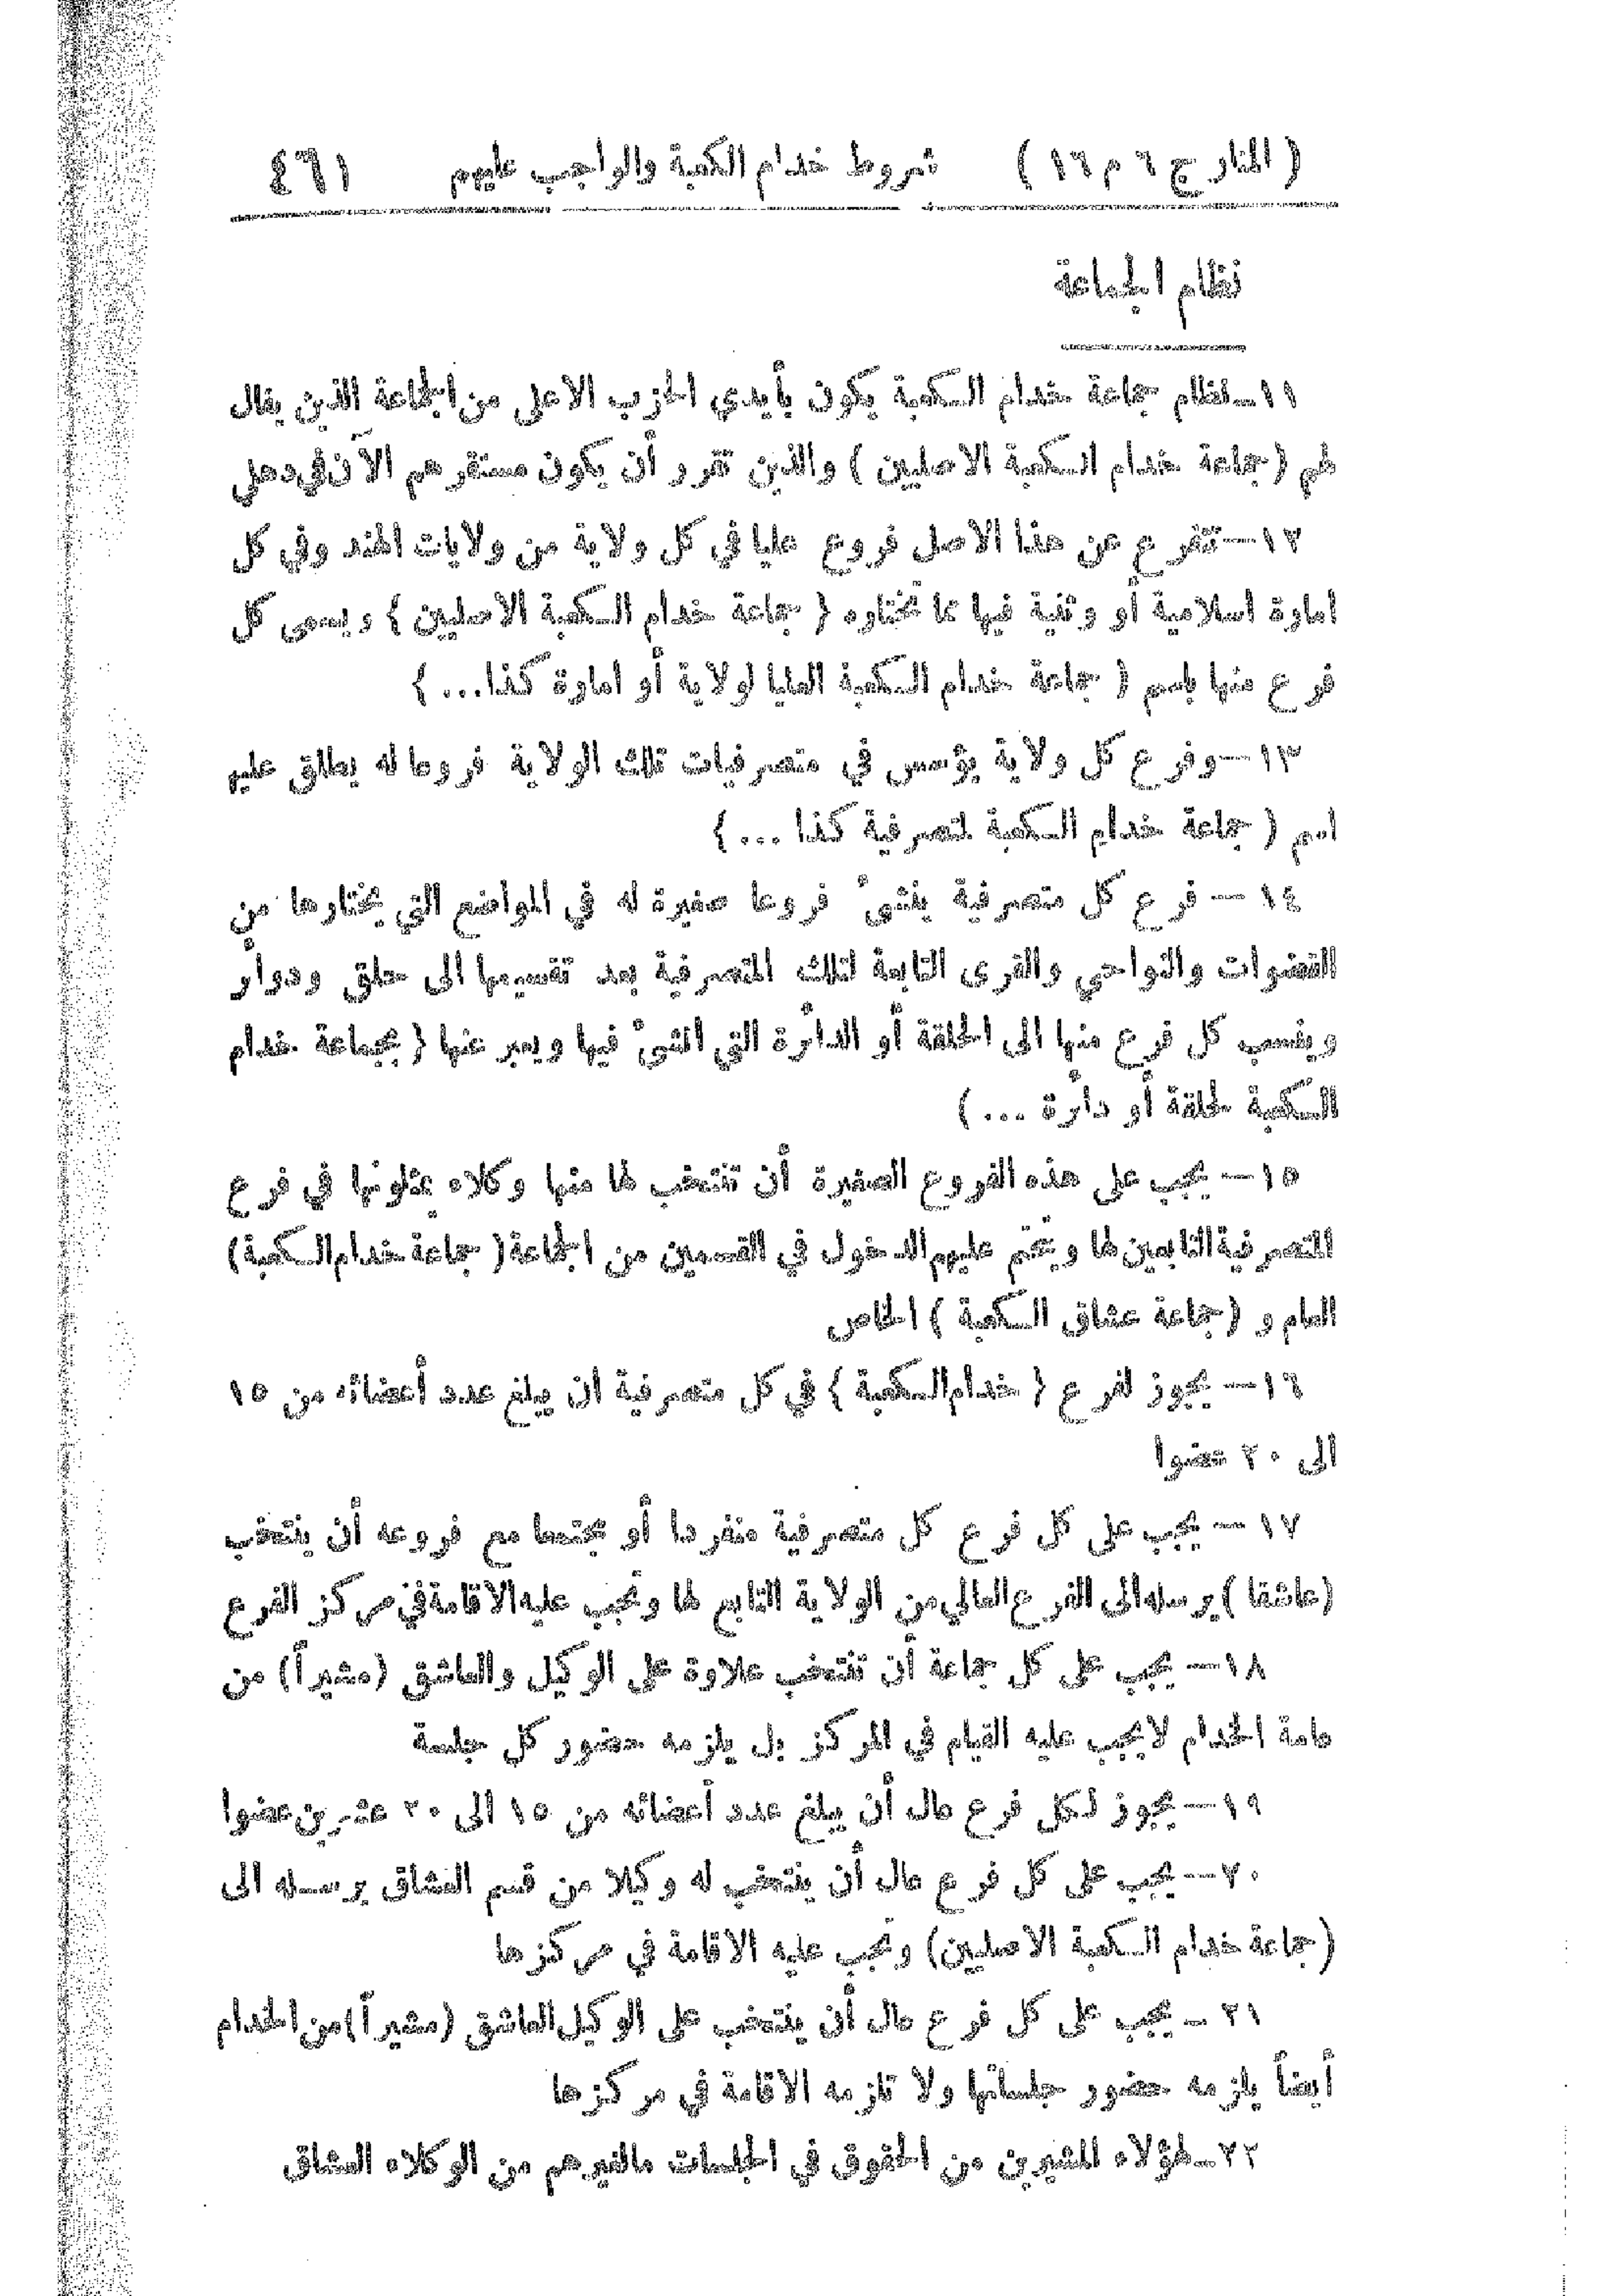 ( المنار ج ٦ م ١٦ ) شروط خدام الكعبة والواجب عليهم ٤٦١
نظام الجماعة
١١ـ نظام جماعة خدام الكعبة يكون بأيدي الحزب الاعلى من الجماعة الذين يقال
لهم (جماعة خدام الكعبة الاصليين ) والذين تقرر أن يكون مستقرهم الآن في دهلي
١٢ـ تتفرع عن هذا الاصل فروع عليا في كل ولاية من ولايات الهند وفي كل
امارة اسلامية أو وثنية فيها مما تختاره ( جماعة خدام الكعبة الاصليين ) ويسمى كل
فرع منها باسم ( جماعة خدام الكعبة العليا لولاية أو امارة كذا... )
١٣ـ وفرع كل ولاية يؤسس في متصرفيات تلك الولاية فروعا له يطلق عليه
اسم ( جماعة خدام الكعبة لمتصرفية كذا ... )
١٤ – فرع كل متصرفية ينشئ فروعا صغيرة له في المواضع التي يختارها من
القضوات والنواحي والقرى التابعة لتلك المتصرفية بعد تقسيمها الى حلق ودوائر
وينسب كل فرع منها الى الحلقة أو الدائرة التي انشئ فيها ويعبر عنها ( بجماعة خدام
الكعبة لحلقة أو دائرة ... )
١٥ – يجب على هذه الفروع الصغيرة أن تنتخب لها منها وكلاء يمثلونها في فرع
المتصرفية التابعين لها ويتحتم عليهم الدخول في القسمين من الجماعة ( جماعة خدام الكعبة )
العام و ( جماعة عشاق الكعبة ) الخاص
١٦ – يجوز لفرع ( خدام الكعبة ) في كل متصرفية ان يبلغ عدد أعضائه من ١٥
الى ٢٠ عضوا
١٧ – يجب على كل فرع كل متصرفية منفردا أو مجتمعا مع فروعه أن ينتخب
(عاشقا ) يرسله الى الفرع العالي من الولاية التابع لها وتجب عليه الاقامة في مركز الفرع
١٨ – يجب على كل جماعة أن تنتخب علاوة على الوكيل والعاشق (مشيراً) من
عامة الخدام لا يجب عليه القيام في المركز بل يلزمه حضور كل جلسة
١٩ – يجوز لكل فرع عال أن يبلغ عدد أعضائه من ١٥ الى ٢٠ عشرين عضوا
٢٠ – يجب على كل فرع عال أن ينتخب له وكيلا من قسم العشاق يرسله الى
(جماعة خدام الكعبة الاصليين) وتجب عليه الاقامة في مركزها
٢١ – يجب على كل فرع عال أن ينتخب على الوكيل العاشق (مشيراً) من الخدام
أيضاً يلزمه حضور جلساتها ولا تلزمه الاقامة في مركزها
٢٢ـ لهؤلاء المشيرين من الحقوق في الجلسات ما لغيرهم من الوكلاء العشاق